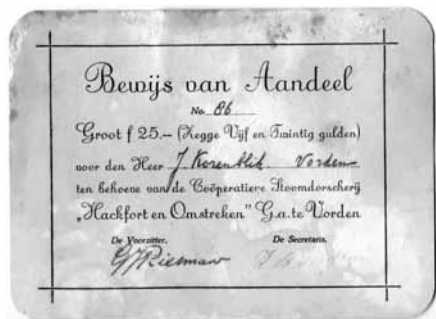 Bewijs van Aandeel
No. 86
Groot f 25.– (Zegge Vijf en Twintig gulden)
voor den Heer J. Korenblik. Vorden
ten behoeve van de Coöperatieve Stoomdorscherij
„Hackfort en Omstreken" G.a. te Vorden
De Voorzitter, De Secretaris,